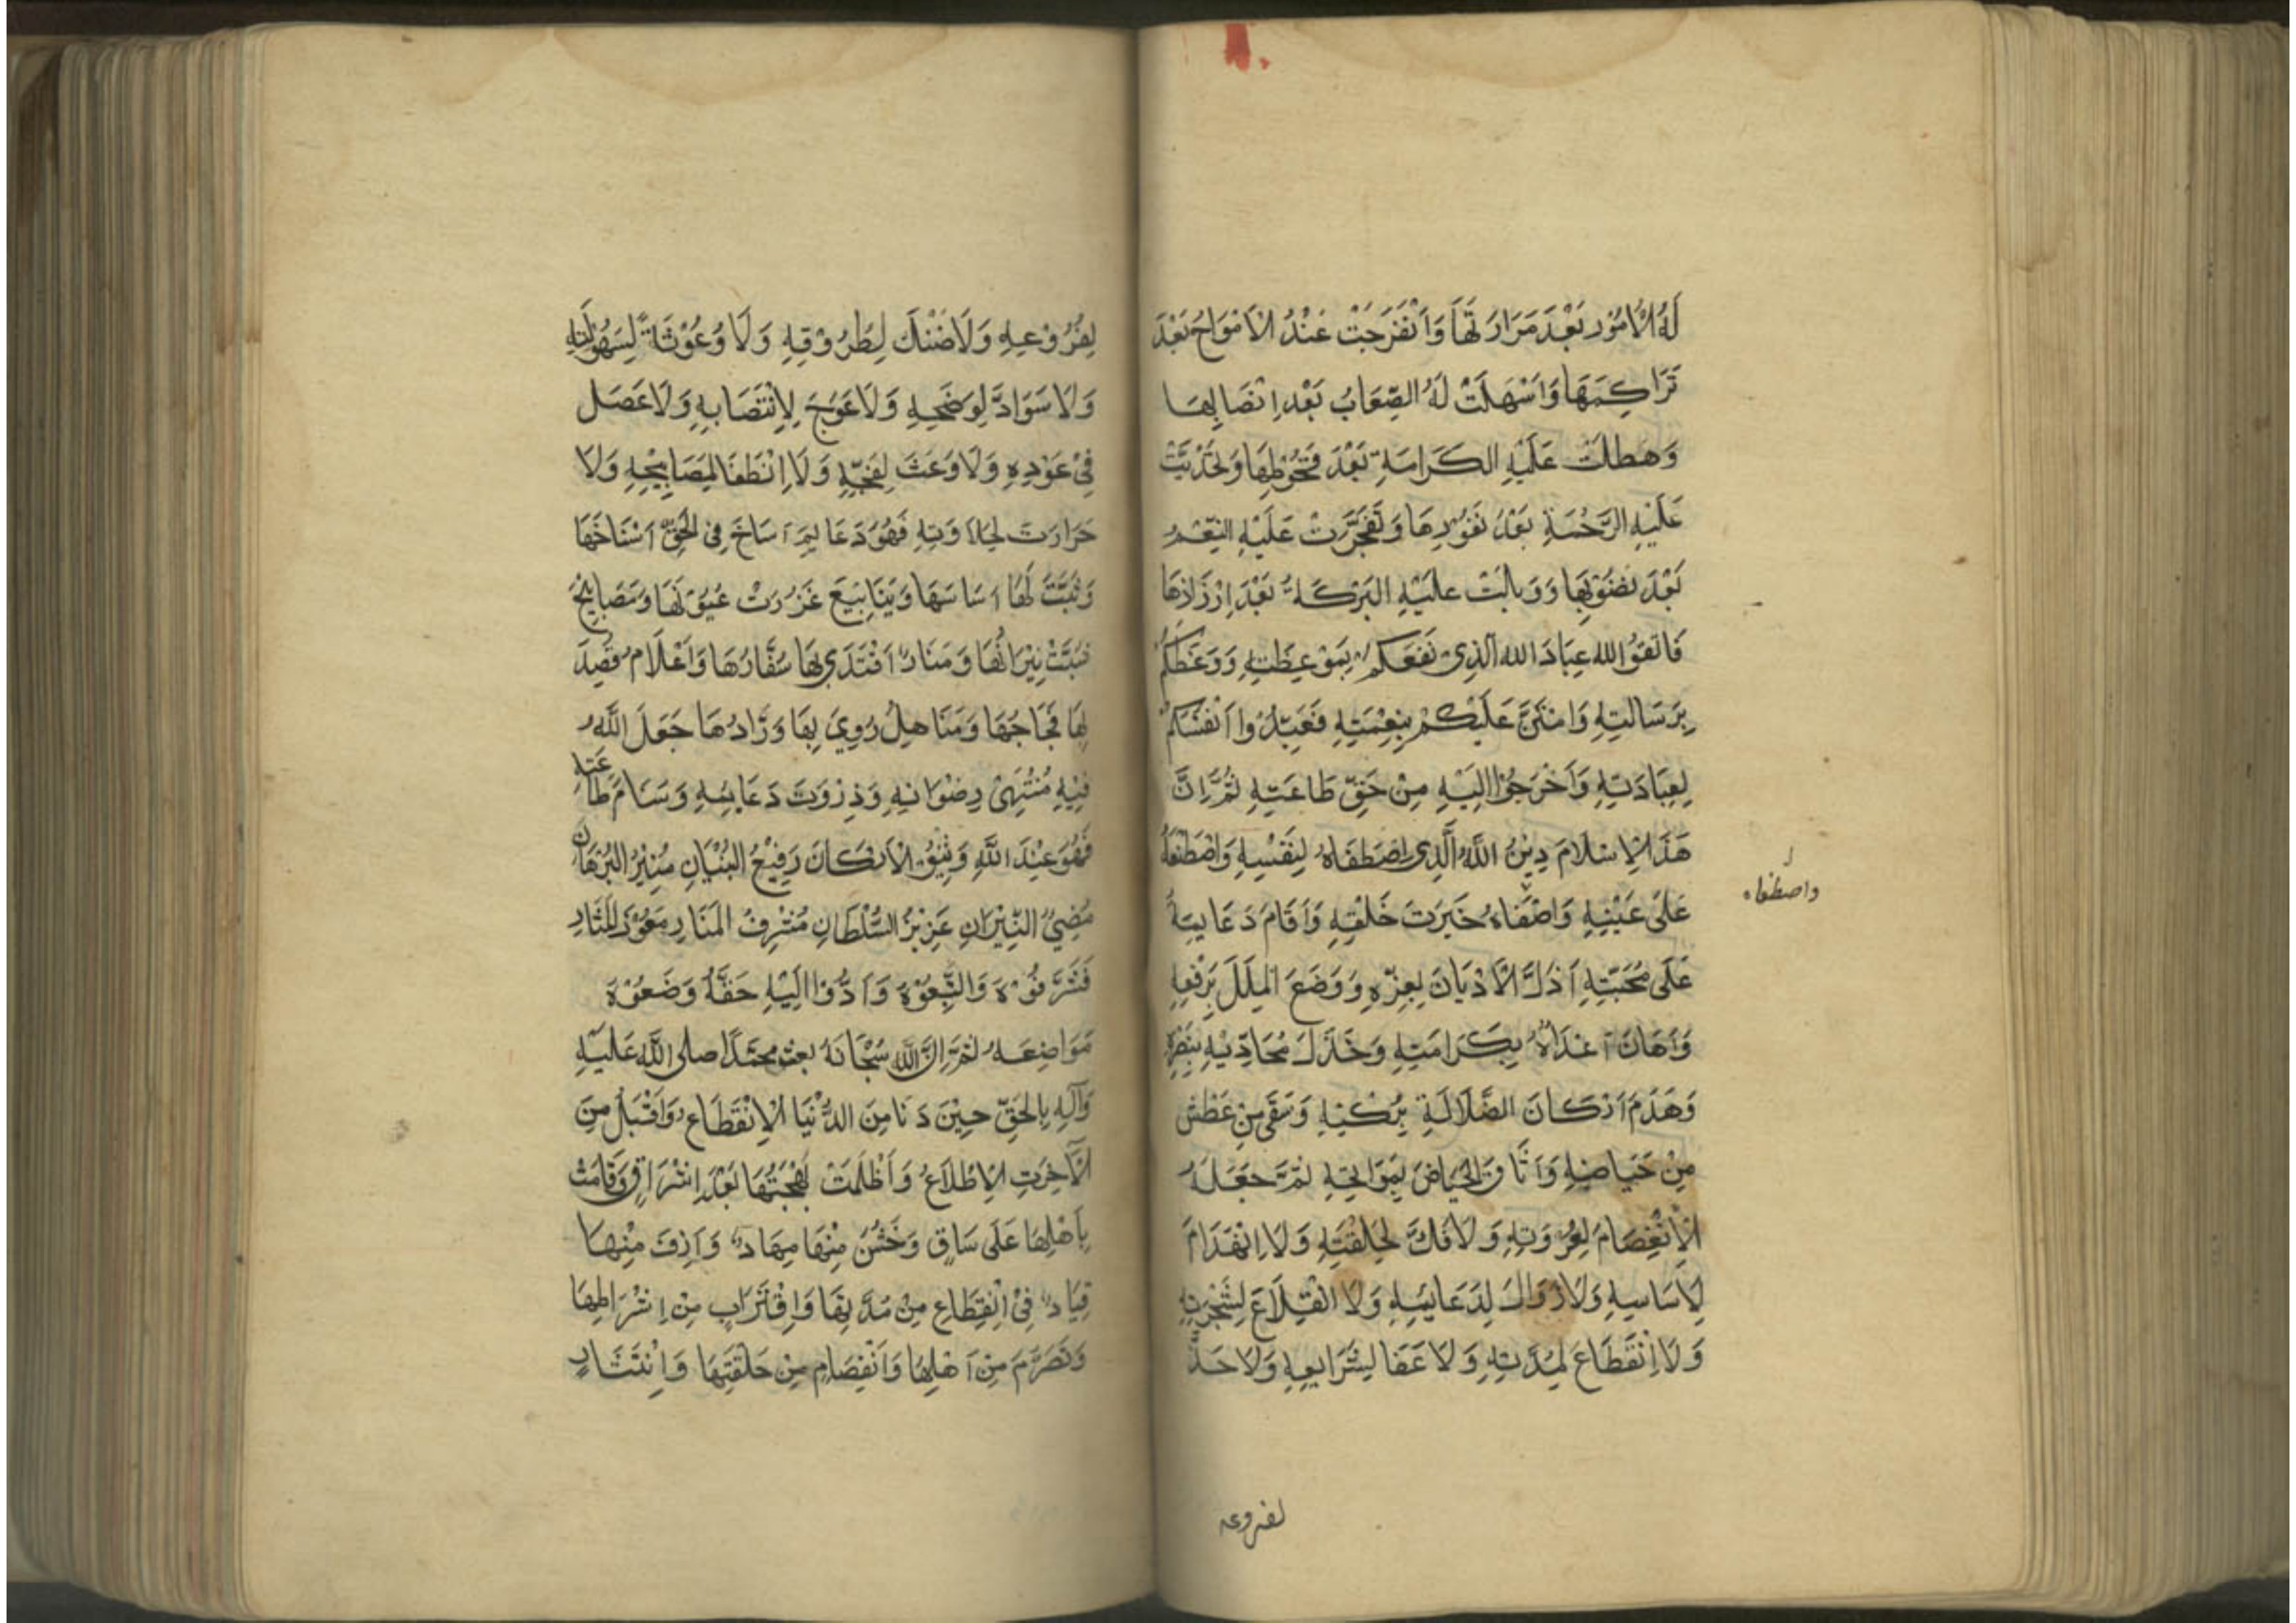 لَهُ الْأُمُوْر بَعْدَ مَرَارَتَهَا وَاَنْفَرَجَتْ عَنْدُ الْاَمْوَاجُ بَعْدَ
تَرَاكِمَهَا وَاَسْهَلَتْ لَهُ الصِّعَابُ بَعْدِ اِنْصَابِهَا
وَهَطلَتْ عَلَيْهِ الكَرامَةِ بَعْدَ قَحُوْطِهَا وَتحَدَّيَتْ
عَلَيْهِ الرَّحْمَةِ بَعْدُ نَفُوْرِهَا وَتَفَجَّرَتْ عَلَيْهِ النِّعَمُ
بَعْدَ نضُوْبِهَا وَوَبالَتْ عَلَيْهِ البَرْكَةُ بَعْدَ اِرْزَاذِهَا
فَاتَّقوُ الله عِبَادَ الله الَّذِىْ نَفَعَكُمْ بِمَوْعِظَتِهِ وَوَعَظَكُمْ
بِرَسَالتِهِ وَامْتَنَّ عَلَيْكُمْ بِنِعْمَتِهِ فَعَبِّدُوا اَنْفسَكُمْ
لِعِبَادَتِهِ وَاَخْرَجُوْا اِلَيْهِ مِنْ حَقِّ طَاعَتِهِ ثُمَّ اِنَّ
هَذَ الْاِسْلَامَ دِيْنُ اللَّهُ الَّذِى اِصْطَفَاهُ لِنَفْسِهِ وَاصْطَنَعَهُ
عَلَىْ عَيْنِهِ وَاصْفَاهُ خَيرَتَ خَلْقِهِ وَاَقَامَ دَعَايمِهُ
عَلَى مُحَبَّتِهِ اَذَلَّ الْاَدْيَانَ بِعِزّهِ وَوَضَعَ الْمِلَلَ بَرْفعِهِ
وَاَهَانَ اَعْدَاهُ بِكَرَامَتِهِ وَخَذَلَ مُحَادِّيْهِ بِنَصْرِهِ
وَهَدَمَ اَرْكَانَ الضَّلَالَةِ بِرُكْنِهِ وَسَقَى مِنْ عَطَش
مِنْ حَيَاضِهِ وَاَتَاقَ الْحِيَاضَ بِمَوَاتحِهِ ثُمَّ جَعَلَهُ
الْاَنْفِصَامَ لِعُرْوَتِهِ وَلَا فَكَّ لِحَلْقَتِهِ وَلَا اِنْهَدَامَ
لِاَسَاسِهِ وَلَا زَوَالَ لِدَعَائِمِهِ وَلَا انْقِلَاعَ لِشَجْرَتِهِ
وَلَا اِنْقَطَاعَ لِمُدَّتِهِ وَلَا عَفَا لِشَرَايِعِهِ وَلَا جَذَّ
واصطفاه
لفروعه
لِفُرُوْعِهِ وَلَاضَنْكَ لِطُرُوْقِهِ وَلَا وُعُوْثَةً لِسَهُوْلَتِهِ
وَلَا سَوَادَ لِوَضَحِهِ وَلَا عَوَجَ لِاِنْتَصَابِهِ وَلَا عَصَل
فِىْ عَوْدِهِ وَلَا وَعَثَ لِفَجّهِ وَلَا اِنْطَفَا لِمَصَابِيْحِهِ وَلَا
مَرَارَتَ لِحَلَاوَتِهِ فَهُوَ دَعَايِمَ اَسَاخَ فِى الْحَقّ اَسْنَاخَهَا
وَثَبَّتَ لَهَا اَسَاسَهَا وَيَنَابِيْعَ غَزُرَتْ عُيُوْنَهَا وَمَصَابِيْحُ
شبَّتْ نِيْرَانُهَا وَمَنَارُ اَقْتَدَىْ بِهَا سُفَّارُهَا وَاَعْلَامُ قُصِدَ
بِهَا فِجَاجُهَا وَمَنَاهِلُ رُوِيَ بِهَا وَرَّادُهَا جَعَلَ اللَّهُ
فِيْهِ مُنْتُهَىْ رِضْوَانِهِ وَذِرْوَتَ دَعَائِمِهِ وَسَنَامَ طَاعَتِهِ
فَهُوَ عِنْدَ اللَّهِ وَثِيْقُ الْاَرْكَانَ رَفِيْعُ الْبُنْيَانِ مُنِيْرُ البُرْهَانِ
مُضِيُ النِّيْرَانِ عَزِيْزُ السُّلْطَانِ مُشْرِفُ الْمَنَارِ مَعُوْذَ الْمَثَارِ
فَشَرّفُوْهَ وَاتَّبِعُوْهَ وَاَدُّوْا اِلَيْهِ حَقَّهُ وَضَعُوْهَ
مَوَاضِعَهُ ثمَّ اِنَّ اللَّهَ سُبْحَانَهُ بعث محمَّدًا صلى اللَّه عَليْهِ
وَآلِهِ بِالْحَقّ حِيْنَ دَنَا مِنَ الدُّنْيَا الْاِنْقَطَاعِ وَاَقْبَلَ مِنَ
الْآخِرَتِ الْاِطْلَاعُ وَاَظْلَمَتْ بَهْجَتُهَا بَعْدَ اِشْرَاقٍ وَقَامَتْ
بِاَهْلِهَا عَلَى سَاقٍ وَخَشُنَ مِنْهَا مِهَادُ وَاَزِفَ مِنْهَا
قِيَادُ فِىْ اِنْقِطَاعِ مِنْ مُدَّتِهَا وَاِقْتَرَابٍ مِنْ اِشْرَاطِهَا
وَتَصَرَّمَ مِنْ اَهْلِهَا وَاَنْفِصَامِ مِنْ حَلْقَتِهَا وَاِنْتَشَارٍ